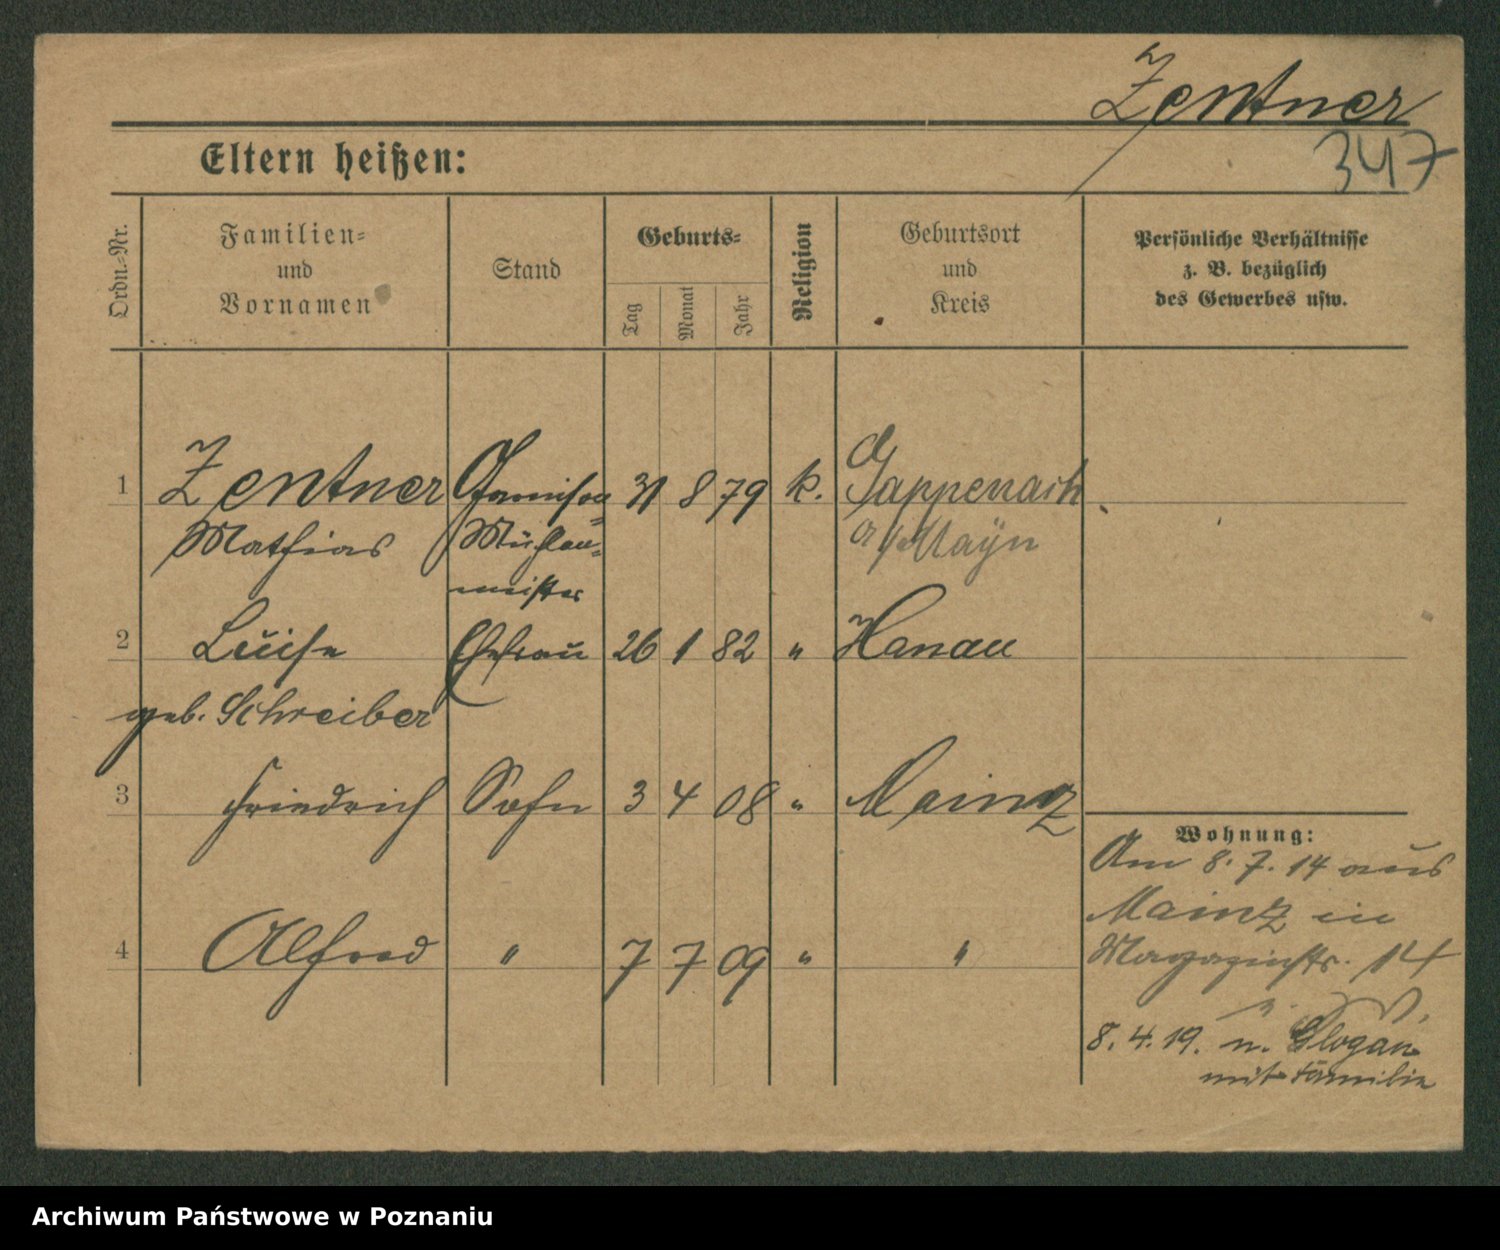 Zentner
347
Eltern heißen:
Ordn.-Nr.
Familien-
und
Vornamen
Stand
Geburts-
Tag
Monat
Jahr
Religion
Geburtsort
und
Kreis
Persönliche Verhältnisse
z. B. bezüglich
des Gewerbes usw.
1 Zentner Garnison 31 8 79 k. Gappenach
Mathias Mühlen- a/Mayn
meister
2 Luise Ehefrau 26 1 82 " Hanau
geb. Schreiber
3 Friedrich Sohn 3 4 08 " Mainz
Wohnung:
Am 8. 7. 14 aus
Mainz in
4 Alfred " 7 7 09 " "
Magazinstr. 14
8. 4. 19. n. Glogau
mit Familie